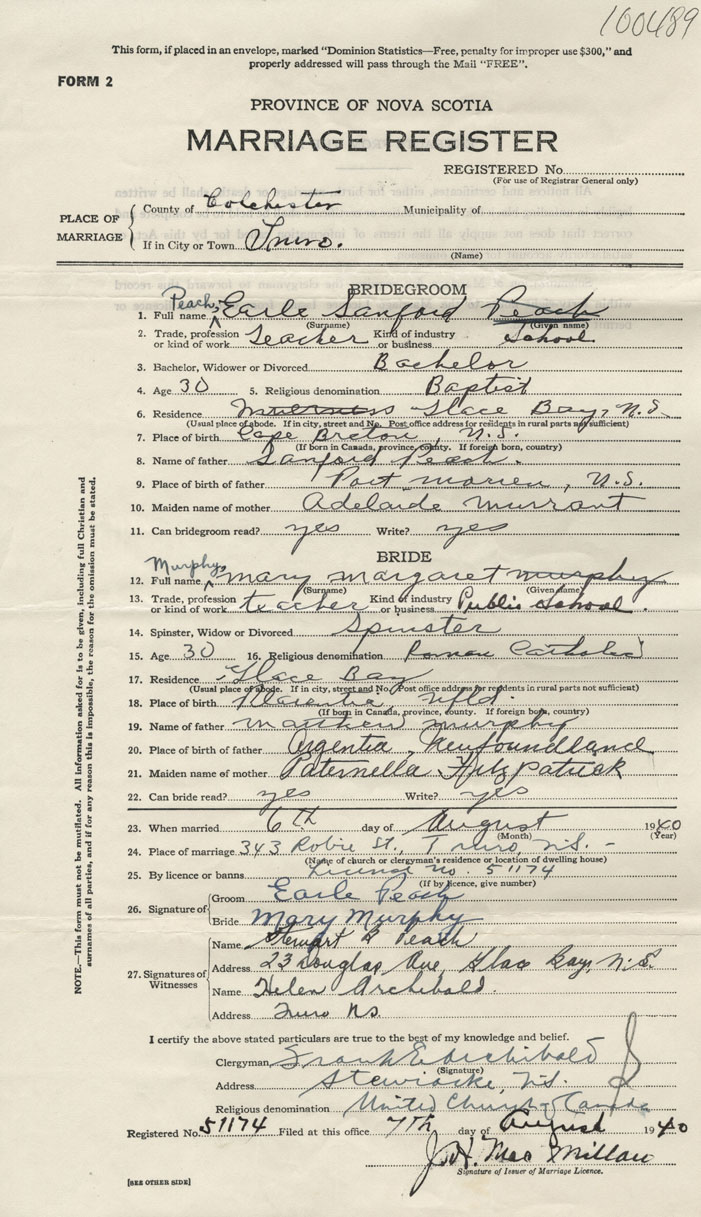 100489
This form, if placed in an envelope, marked "Dominion Statistics—Free, penalty for improper use $300," and
properly addressed will pass through the Mail "FREE".
FORM 2
PROVINCE OF NOVA SCOTIA
MARRIAGE REGISTER
REGISTERED No.
(For use of Registrar General only)
PLACE OF MARRIAGE
County of Colchester Municipality of
If in City or Town Truro.
(Name)
BRIDEGROOM
Peach,
1. Full name Earle Sanford Peach
(Surname) (Given name)
2. Trade, profession or kind of work Teacher Kind of industry or business School
3. Bachelor, Widower or Divorced Bachelor
4. Age 30 5. Religious denomination Baptist
6. Residence Glace Bay, N.S.
(Usual place of abode. If in city, street and No. Post office address for residents in rural parts not sufficient)
7. Place of birth Cape Breton, N.S.
(If born in Canada, province, county. If foreign born, country)
8. Name of father Sanford Peach.
9. Place of birth of father Port Morien, N.S.
10. Maiden name of mother Adelaide Murrant
11. Can bridegroom read? yes Write? yes
BRIDE
Murphy,
12. Full name Mary Margaret Murphy
(Surname) (Given name)
13. Trade, profession or kind of work teacher Kind of industry or business Public School.
14. Spinster, Widow or Divorced Spinster
15. Age 30 16. Religious denomination Roman Catholic
17. Residence Glace Bay
(Usual place of abode. If in city, street and No. Post office address for residents in rural parts not sufficient)
18. Place of birth Placentia, Nfld.
(If born in Canada, province, county. If foreign born, country)
19. Name of father Matthew Murphy
20. Place of birth of father Argentia, Newfoundland
21. Maiden name of mother Paternella Fitzpatrick
22. Can bride read? yes Write? yes
23. When married 6th day of August 1940
(Month) (Year)
24. Place of marriage 343 Robie St., Truro, N.S. -
(Name of church or clergyman's residence or location of dwelling house)
25. By licence or banns License No. 51174
(If by licence, give number)
26. Signature of
Groom Earle Peach
Bride Mary Murphy
27. Signatures of Witnesses
Name Stewart B Peach
Address 23 Douglas Ave, Glace Bay, N.S.
Name Helen Archibald.
Address Truro N.S.
I certify the above stated particulars are true to the best of my knowledge and belief.
Clergyman Frank E. Archibald
(Signature)
Address Stewiacke, N.S.
Religious denomination United Church of Canada
Registered No. 51174 Filed at this office 7th day of August 1940
J. H. MacMillan
Signature of Issuer of Marriage Licence.
[SEE OTHER SIDE]
NOTE.—This form must not be mutilated. All information asked for is to be given, including full Christian and
surnames of all parties, and if for any reason this is impossible, the reason for the omission must be stated.